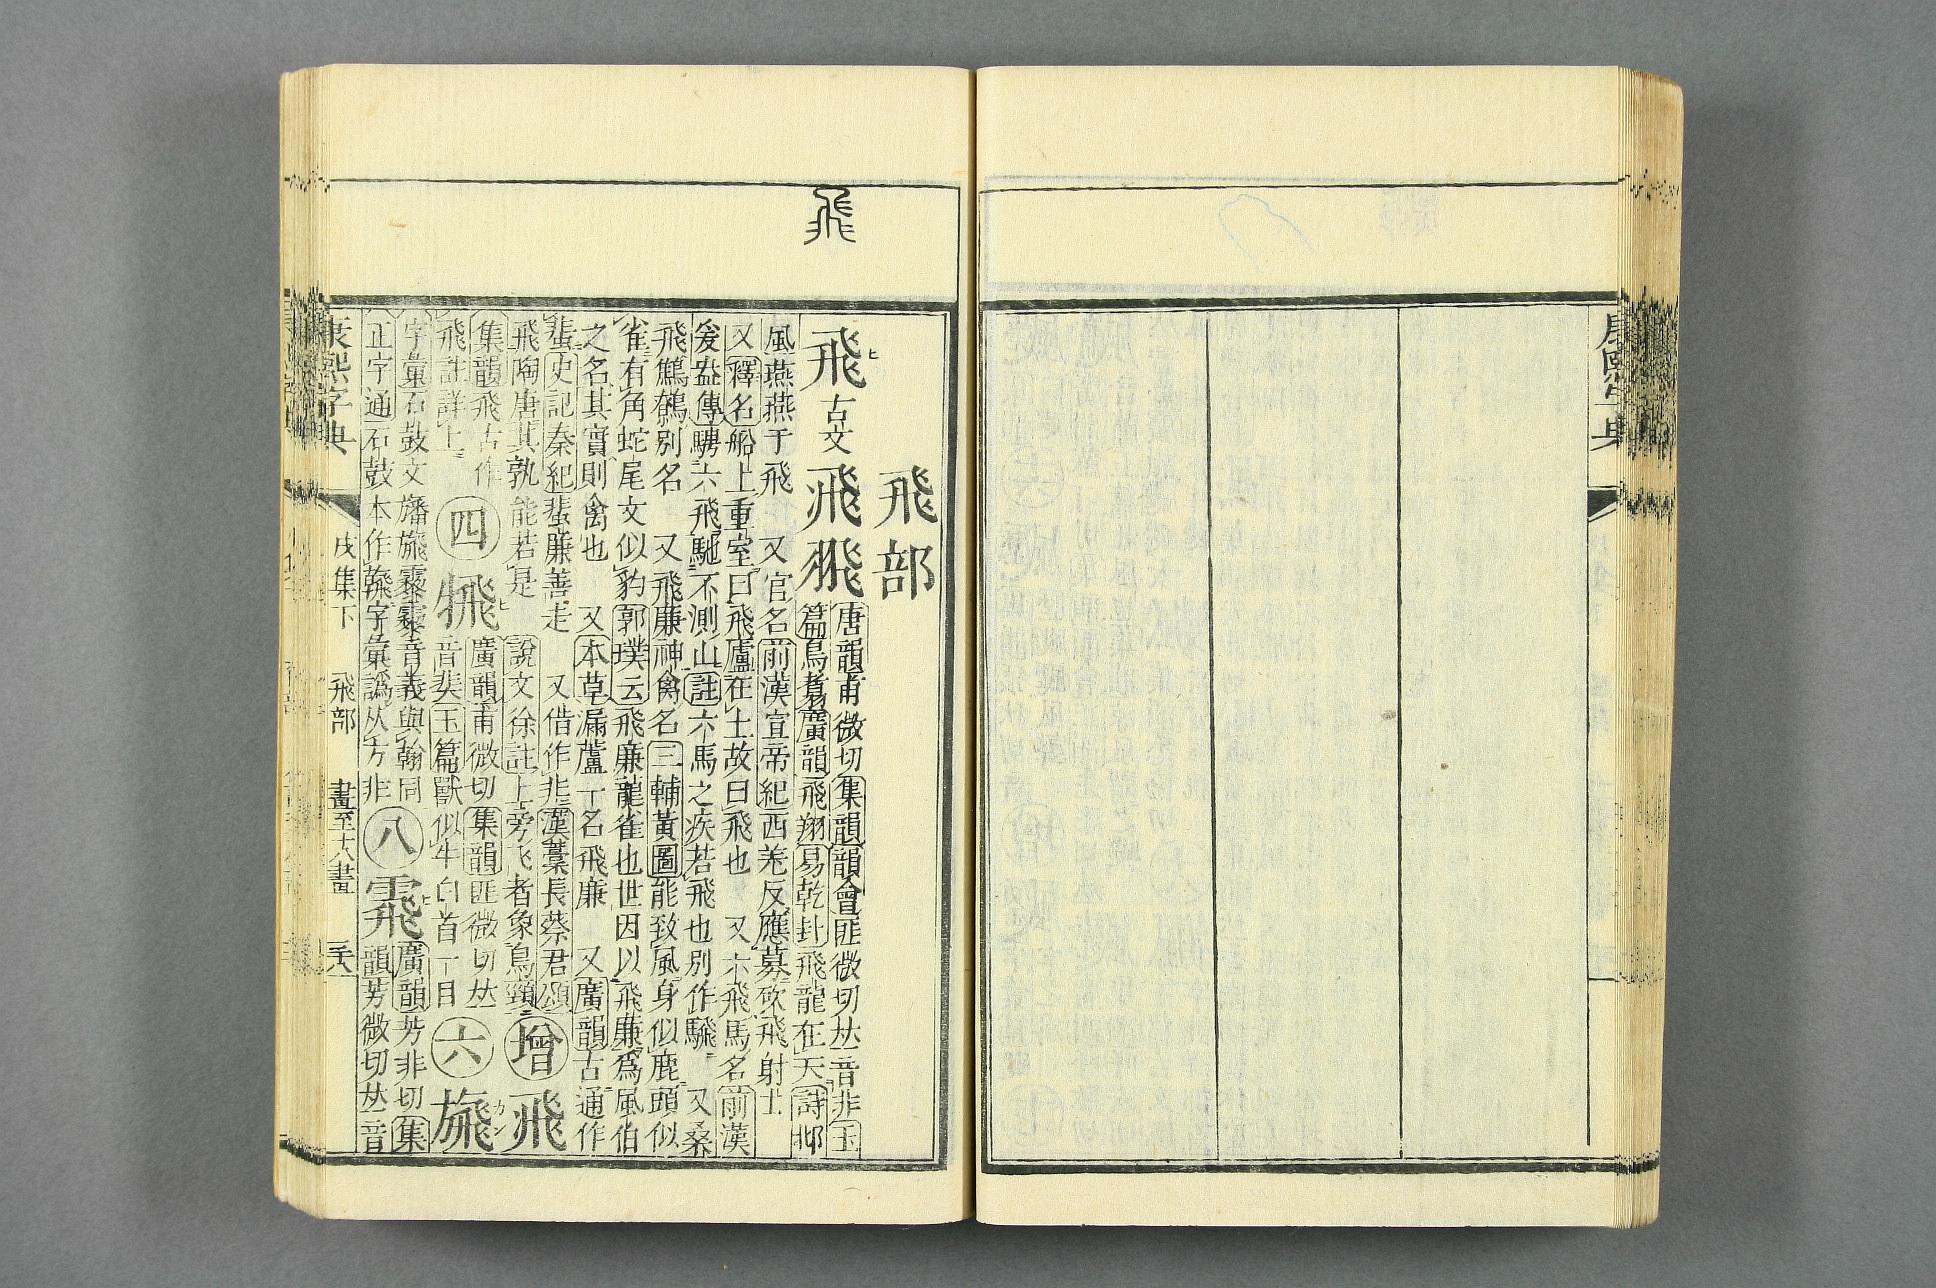 康熙字典
飛
飛部
飛 ヒ 古文 飛 飛 唐韻甫微切集韻韻會匪微切𠀤音非玉
篇鳥翥廣韻飛翔易乾卦飛龍在天詩邶
風燕燕于飛 又官名前漢宣帝紀西羌反應募佽飛射士
又釋名船上重室曰飛廬在上故曰飛也 又六飛馬名前漢
爰盎傳騁六飛馳不測山註六馬之疾若飛也別作騛 又桑
飛鷦鷯別名 又飛廉神禽名三輔黃圖能致風身似鹿頭似
雀有角蛇尾文似豹郭璞云飛廉龍雀也世因以飛廉爲風伯
之名其實則禽也 又本草漏蘆一名飛廉 又廣韻古通作
蜚史記秦紀蜚廉善走 又借作非漢藁長蔡君頌
飛陶唐其孰能若是 說文徐註上旁飞者象鳥頸 增 飛
集韻飛古作
飛註詳上 四 㹃 ヒ 廣韻甫微切集韻匪微切𠀤
音裴玉篇獸似牛白首一目 六 䬇 カン
字彙石鼓文旛䬇𩆵𩆵音義與翰同
正字通石鼓本作𩙺字彙譌从方非 八 䨾 ヒ 廣韻芳非切集
韻芳微切𠀤音
康熙字典 戌集下 飛部 畫至十六畫 三十八